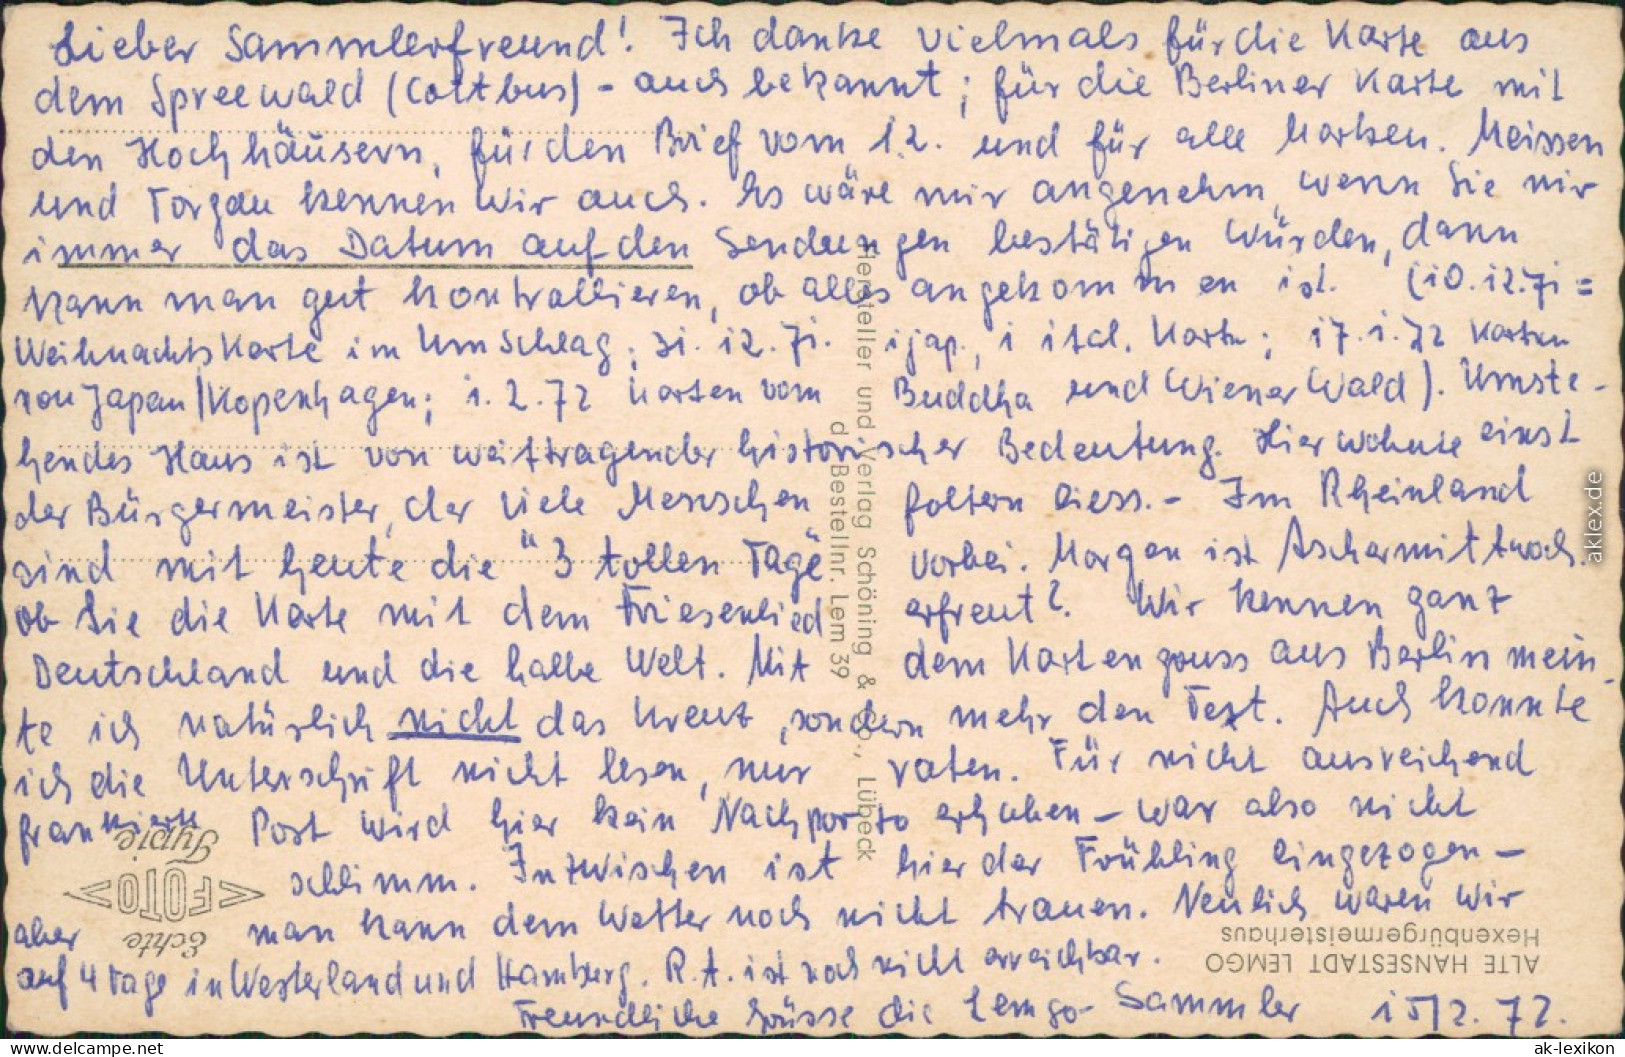 Lieber Sammlerfreund! Ich danke vielmals für die Karte aus
dem Spreewald (Cottbus) - auch bekannt; für die Berliner Karte mit
den Hochhäusern, für den Brief vom 1.2. und für alle Marken. Meissen
und Torgau kennen wir auch. Es wäre mir angenehm, wenn Sie mir
immer das Datum auf den Sendungen bestätigen würden, dann
kann man gut kontrollieren, ob alles angekommen ist. (10.12.71 =
Weihnachtskarte im Umschlag; 31.12.71. 1 jap., 1 ital. Karte; 17.1.72 Karten
von Japan/Kopenhagen; 1.2.72 Karten vom Buddha und Wiener Wald). Umste-
hendes Haus ist von weittragender historischer Bedeutung. Hier wohnte einst
der Bürgermeister, der viele Menschen foltern liess. - Im Rheinland
sind mit heute die "3 tollen Tage" vorbei. Morgen ist Aschermittwoch.
Ob Sie die Karte mit dem Friesenlied erfreut? Wir kennen ganz
Deutschland und die halbe Welt. Mit dem Kartengruss aus Berlin mein-
te ich natürlich nicht das Kreuz, sondern mehr den Text. Auch konnte
ich die Unterschrift nicht lesen, nur raten. Für nicht ausreichend
frankierte Post wird hier kein Nachporto erhoben - war also nicht
schlimm. Inzwischen ist hier der Frühling eingezogen -
aber man kann dem Wetter noch nicht trauen. Neulich waren wir
auf 4 Tage in Westerland und Hamburg. R.A. ist noch nicht erreichbar.
Freundliche Grüsse die Lemgo-Sammler 15/2.72.
Hersteller und Verlag Schöning & Co., Lübeck
d Bestellnr. Lem 39
Echte
<FOTO>
Typie
ALTE HANSESTADT LEMGO
Hexenbürgermeisterhaus
aklex.de
www.delcampe.net
ak-lexikon